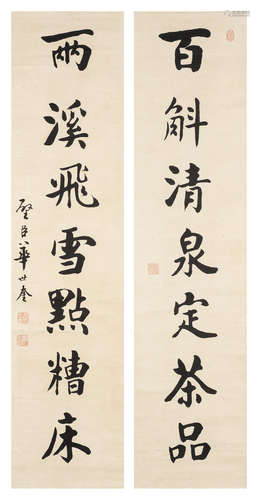 百斛清泉定茶品
兩溪飛雪點糟床
璧臣華世奎